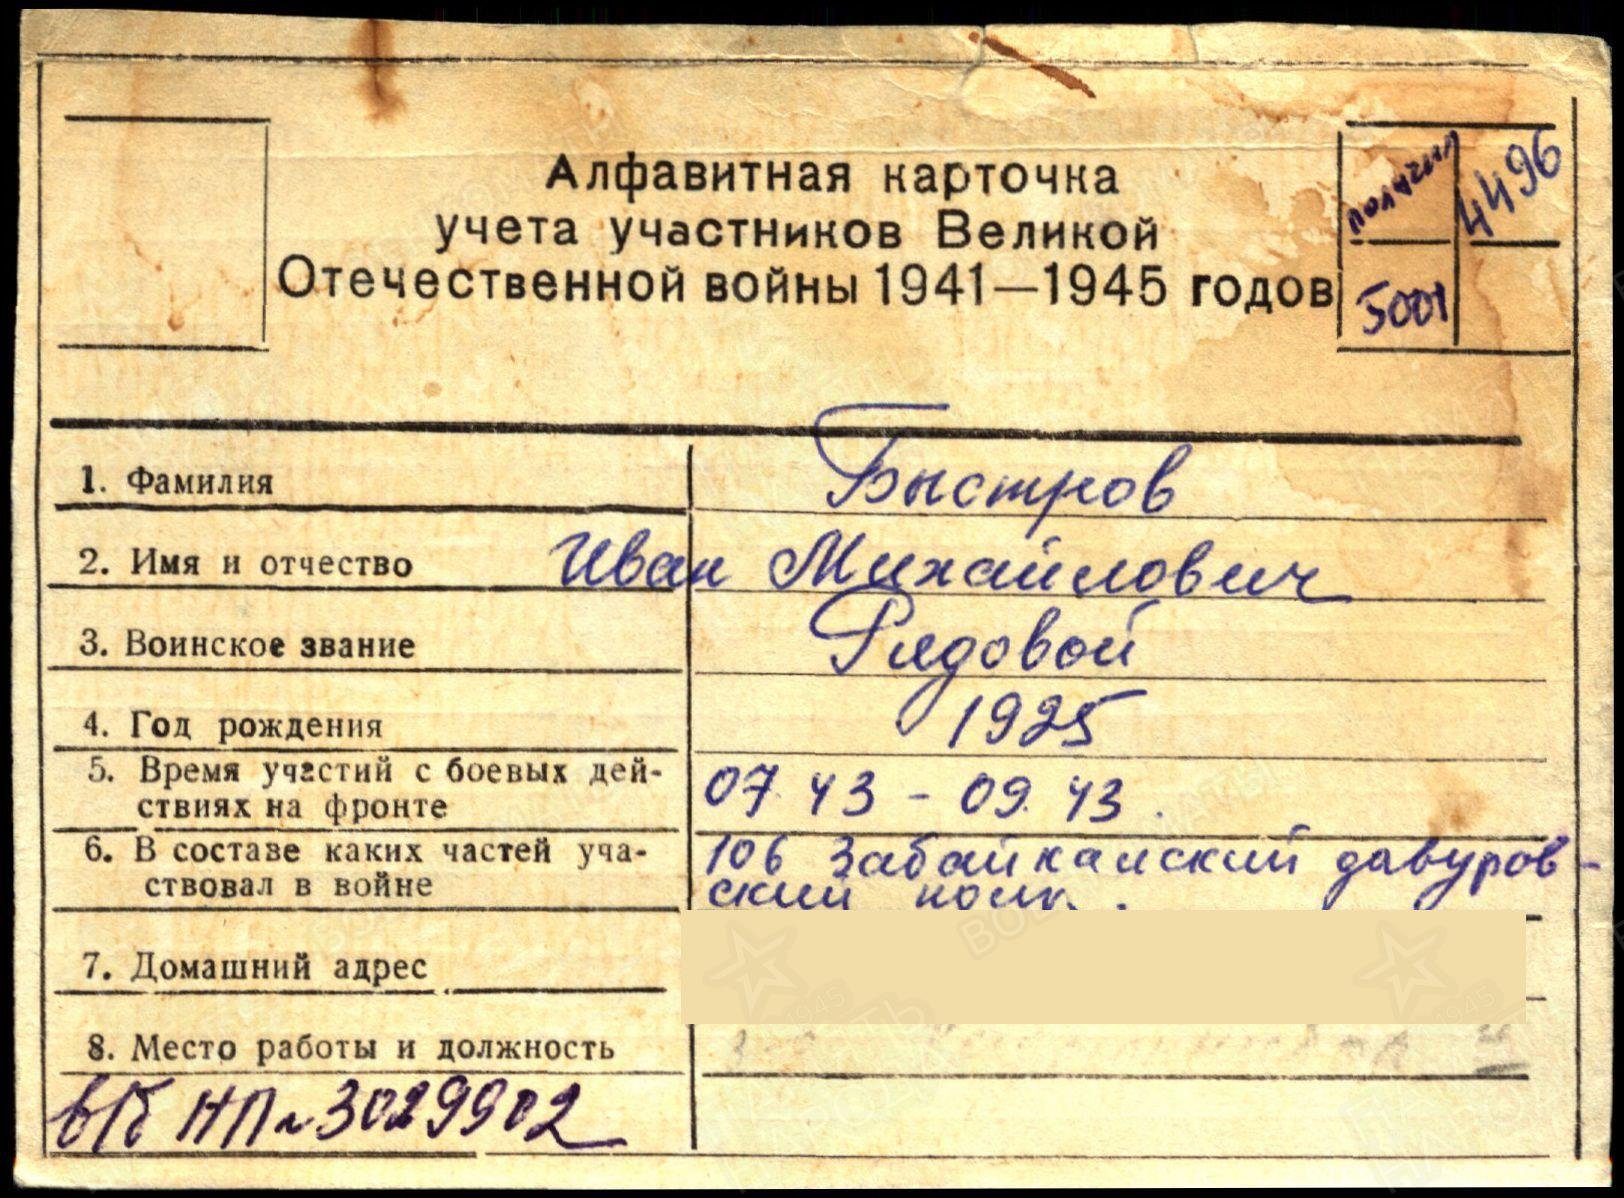 Алфавитная карточка
учета участников Великой
Отечественной войны 1941—1945 годов
получил
4496
5001
1. Фамилия Быстров
2. Имя и отчество Иван Михайлович
3. Воинское звание Рядовой
4. Год рождения 1925
5. Время участий с боевых дей-
ствиях на фронте 07.43 - 09.43.
6. В составе каких частей уча- 106 Забайкалский давуров-
ствовал в войне ский полк.
7. Домашний адрес
8. Место работы и должность
в/б НП № 3029902